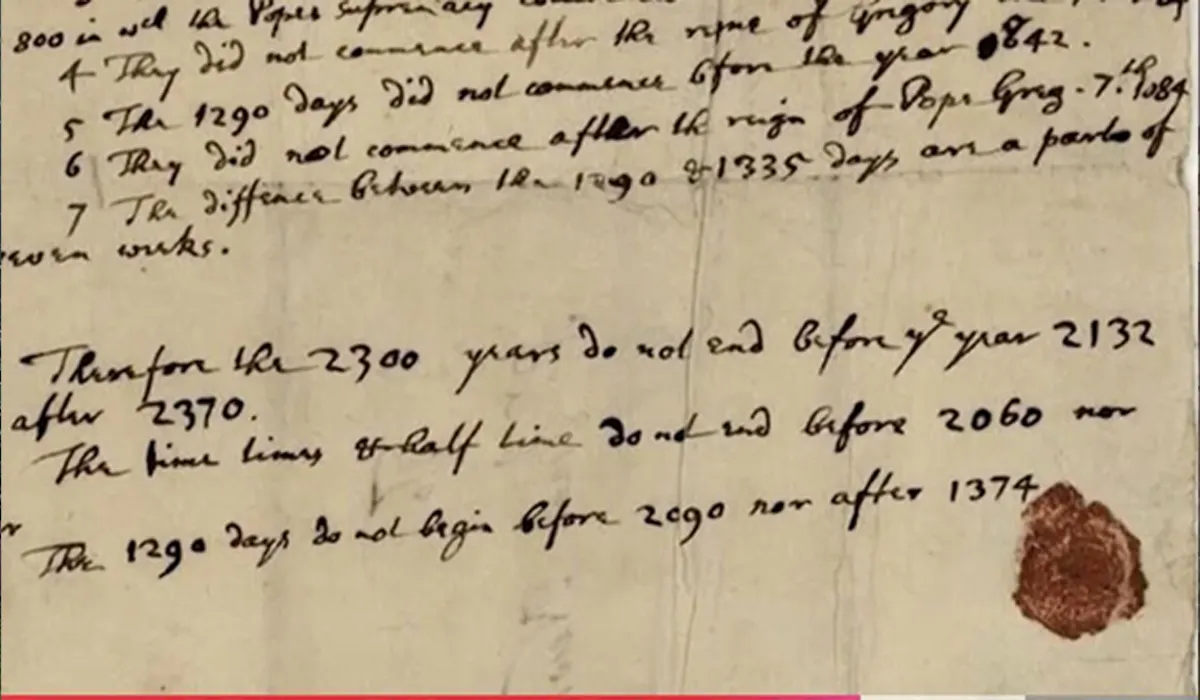 800 in wch the Popes supremacy commenced
4 They did not commence after the reigne of Gregory
5 The 1290 days did not commence bfore the year 842.
6 They did not commence after the reign of Pope Greg. 7th 1084
7 The diffence between the 1290 & 1335 days are a parto of
seven weeks.
Therefore the 2300 years do not end before ye year 2132
after 2370.
The time times & half time do not end before 2060 nor
The 1290 days do not begin before 2090 nor after 1374